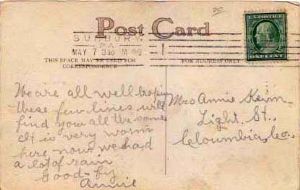 Post Card
SUNBURY
PA.
MAY 7 3 PM
THIS SPACE MAY BE USED FOR
CORRESPONDENCE
FOR ADDRESS ONLY
We are all well hoping
these few lines will
find you all the same
it is very warm
here now we had
a lot of rain
Good-by
Annie
Mrs Annie Keim
Light St.,
Cloumbia, Co.
ONE CENT